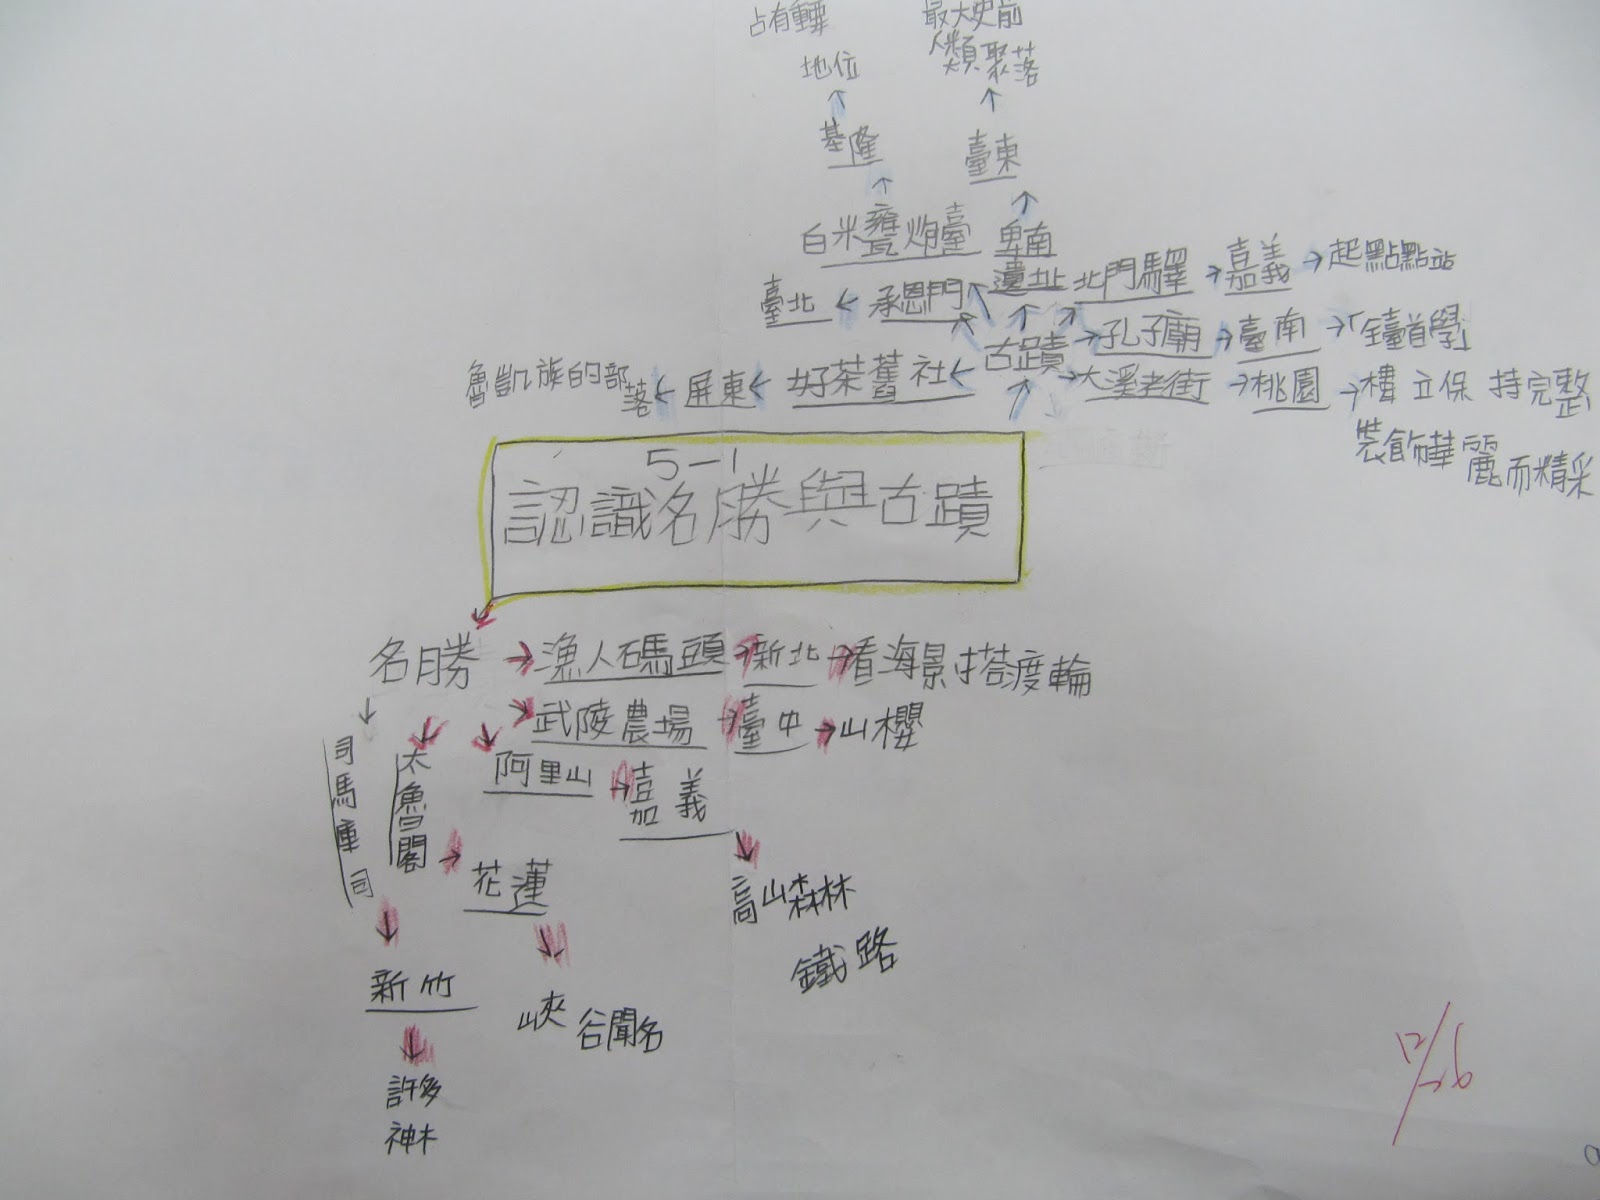 占有重要
地位
基隆
白米甕炮臺
最大史前
人類聚落
臺東
卑南
遺址
臺北
承恩門
北門驛
嘉義
起點點站
古蹟
孔子廟
臺南
「全臺首學」
魯凱族的部
落
屏東
好茶舊社
大溪老街
桃園
樓立保持完整
裝飾華麗而精采
5-1
認識名勝與古蹟
名勝
漁人碼頭
新北
看海景搭渡輪
武陵農場
臺中
山櫻
阿里山
嘉義
高山森林
鐵路
太魯閣
花蓮
峽谷聞名
司馬庫司
新竹
許多
神木
12/26